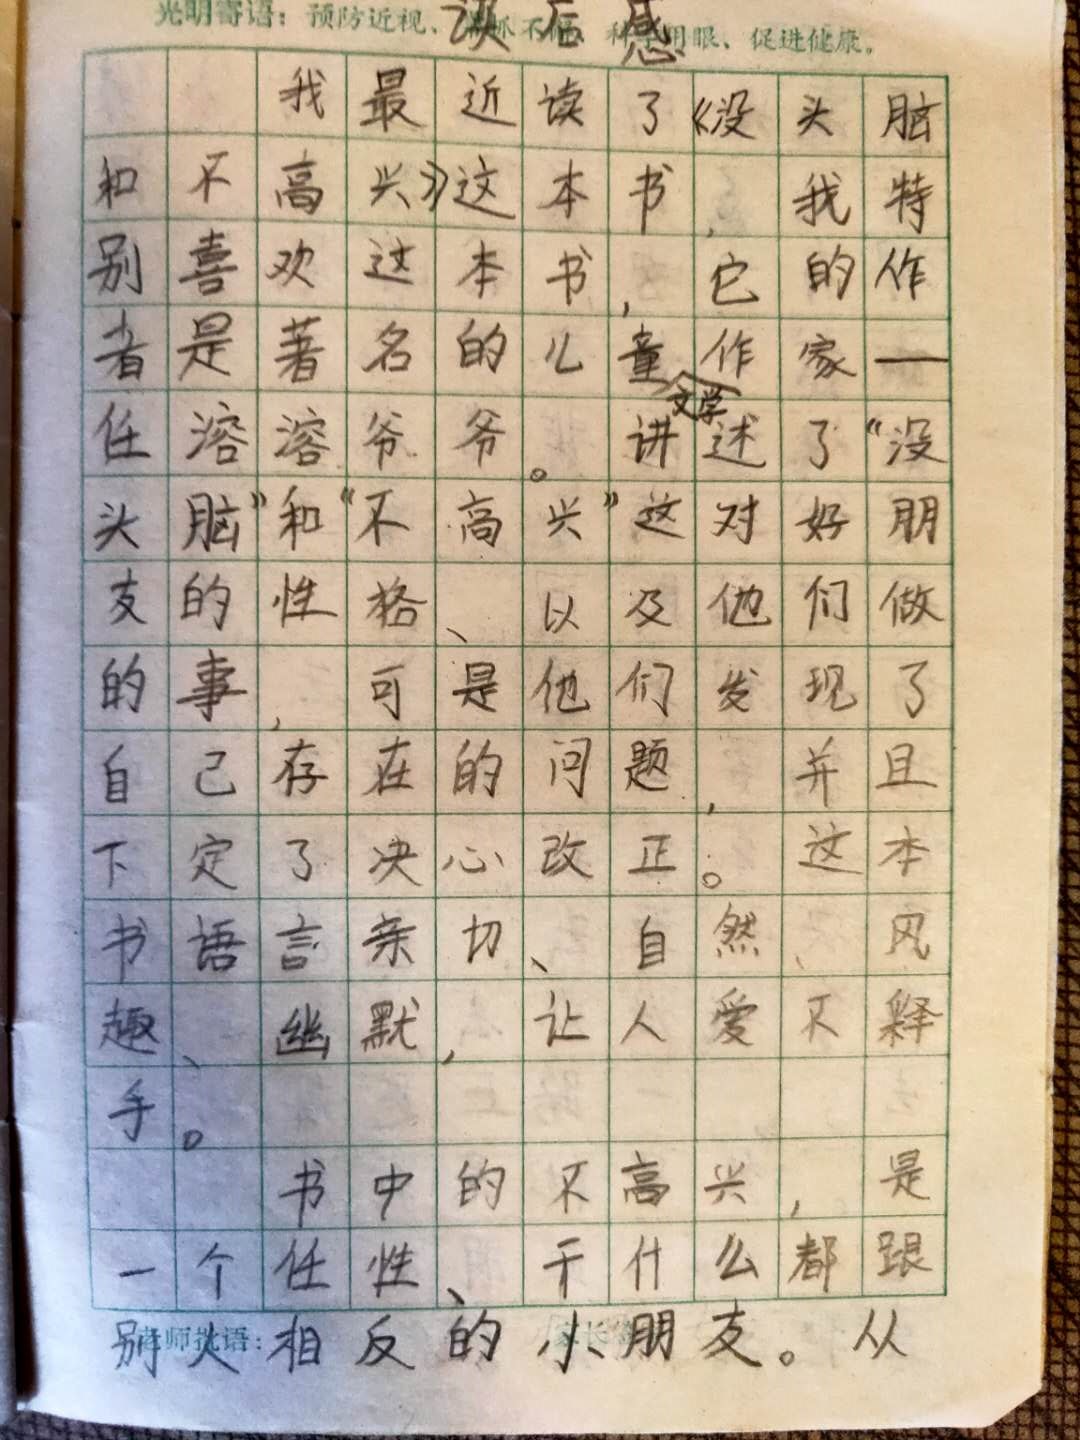 光明寄语：预防近视、抓不 用眼、促进健康。
读后感
我最近读了《没头脑
和不高兴》这本书，我特
别喜欢这本书，它的作
者是著名的儿童作家—
文学
任溶溶爷爷。讲述了“没
头脑”和“不高兴”这对好朋
友的性格、以及他们做
的事，可是他们发现了
自己存在的问题，并且
下定了决心改正。这本
书语言亲切、自然、风
趣、幽默，让人爱不释
手。
书中的不高兴，是
一个任性、干什么都跟
别人相反的小朋友。从
老师批语：